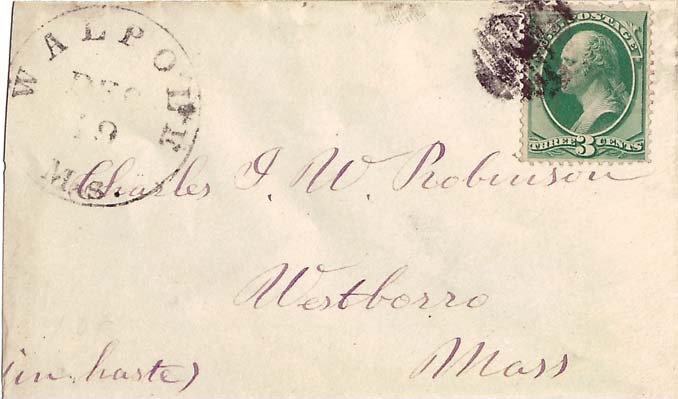 WALPOLE
DEC
19
MS
POSTAGE
THREE 3 CENTS
Charles I. W. Robinson
Westborro
Mass
(in haste)